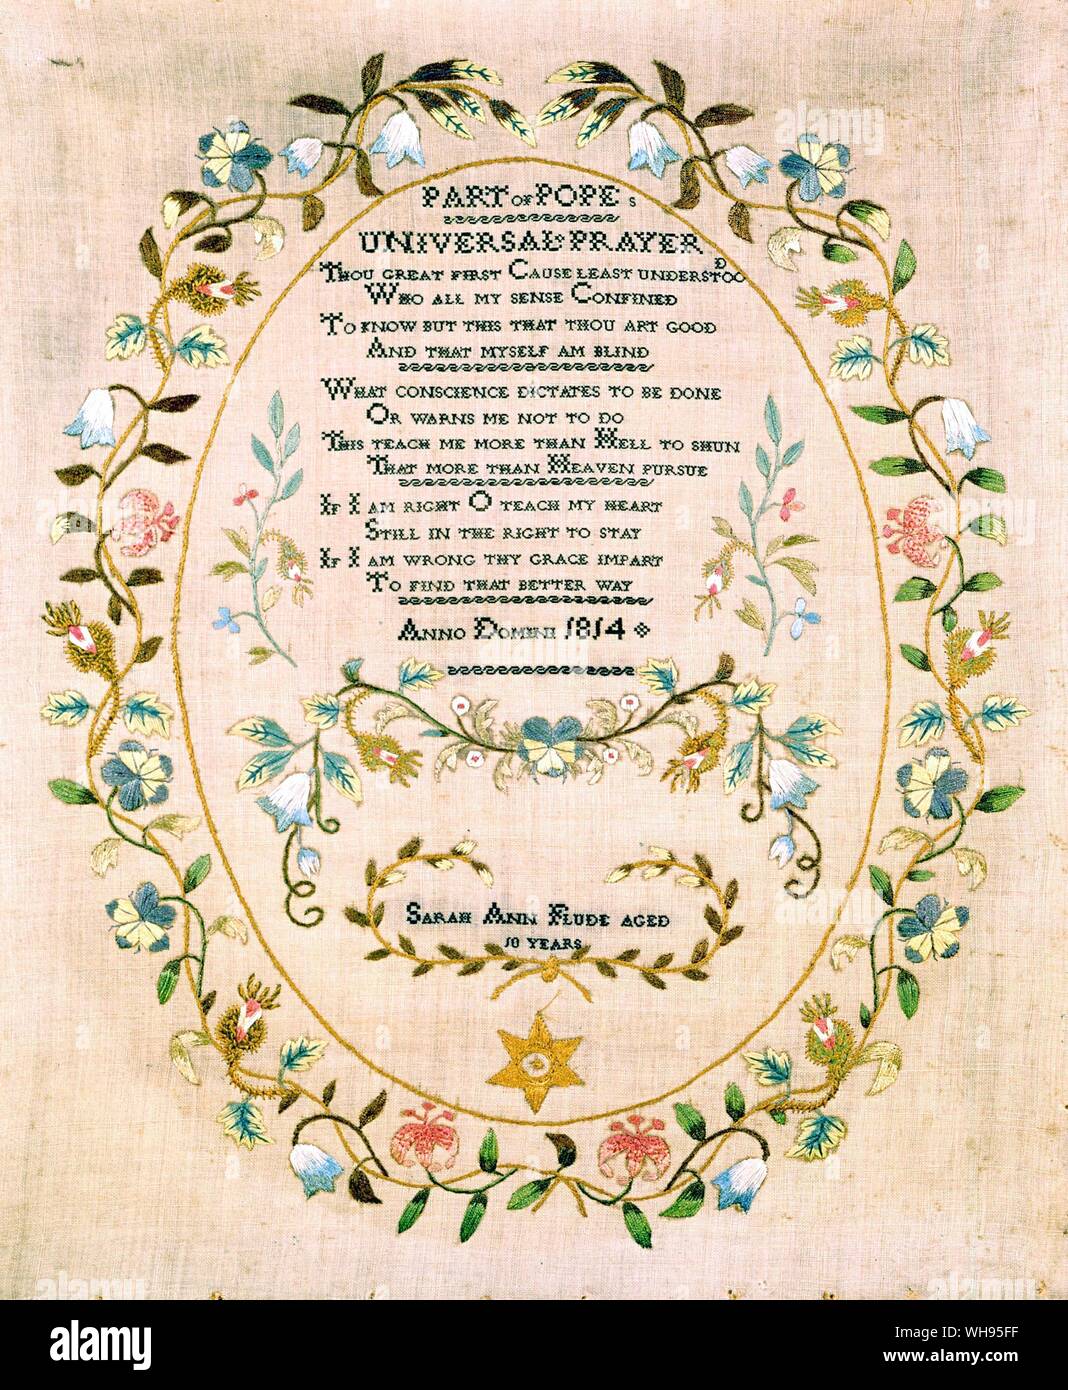 PART OF POPE S
UNIVERSAL PRAYER
THOU GREAT FIRST CAUSE LEAST UNDERSTOOD
WHO ALL MY SENSE CONFINED
TO KNOW BUT THIS THAT THOU ART GOOD
AND THAT MYSELF AM BLIND
WHAT CONSCIENCE DICTATES TO BE DONE
OR WARNS ME NOT TO DO
THIS TEACH ME MORE THAN HELL TO SHUN
THAT MORE THAN HEAVEN PURSUE
IF I AM RIGHT O TEACH MY HEART
STILL IN THE RIGHT TO STAY
IF I AM WRONG THY GRACE IMPART
TO FIND THAT BETTER WAY
ANNO DOMINI 1814
SARAH ANN FLUDE AGED
10 YEARS
alamy
Image ID: WH95FF
www.alamy.com